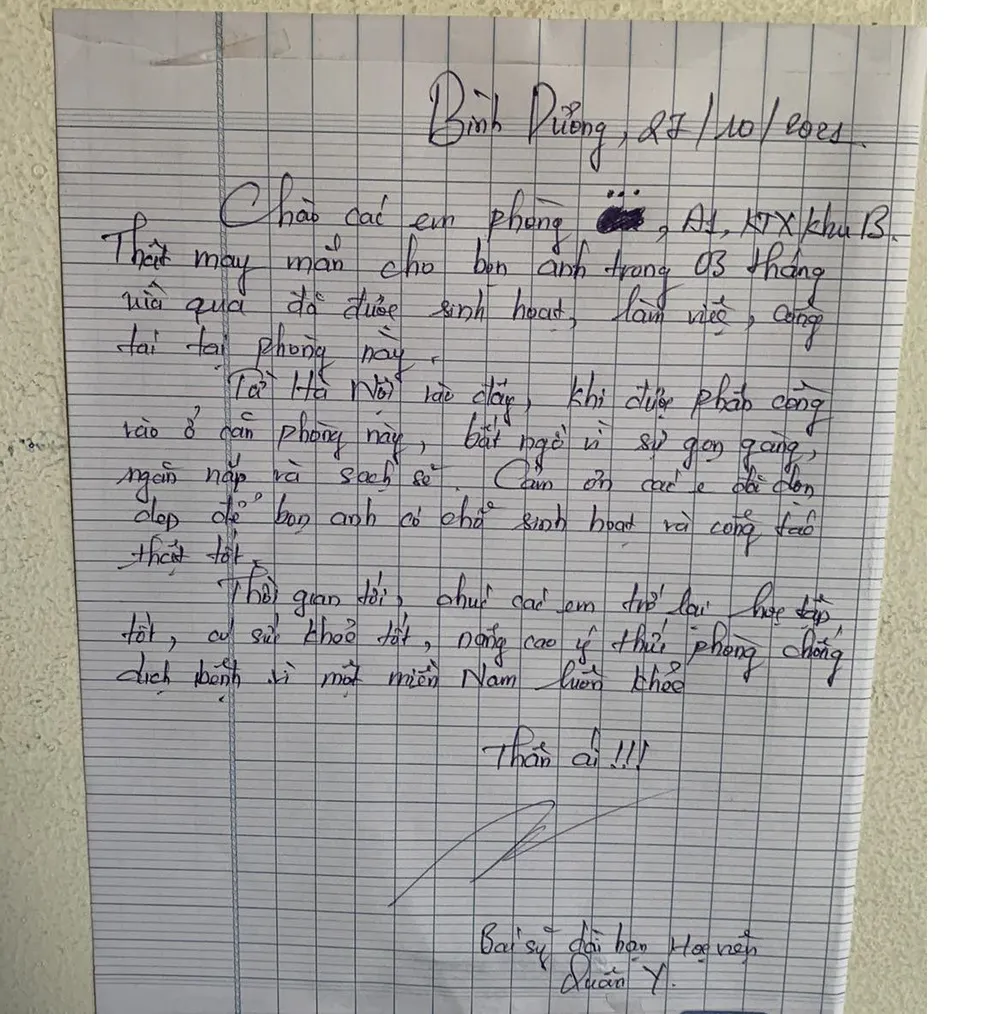 Bình Dương, 27/10/2021.
Chào các em phòng ..., A1, KTX khu B.
Thật may mắn cho bọn anh trong 03 tháng
vừa qua đã được sinh hoạt, làm việc, công
tác tại phòng này.
Từ Hà Nội vào đây, khi được phân công
vào ở căn phòng này, bất ngờ vì sự gọn gàng,
ngăn nắp và sạch sẽ. Cảm ơn các e đã dọn
dẹp để bọn anh có chỗ sinh hoạt và công tác
thật tốt.
Thời gian tới, chúc các em trở lại học tập
tốt, có sức khoẻ tốt, nâng cao ý thức phòng chống
dịch bệnh vì một miền Nam luôn khoẻ
Thân ái!!!
Bác sỹ dài hạn Học viện
Quân Y.